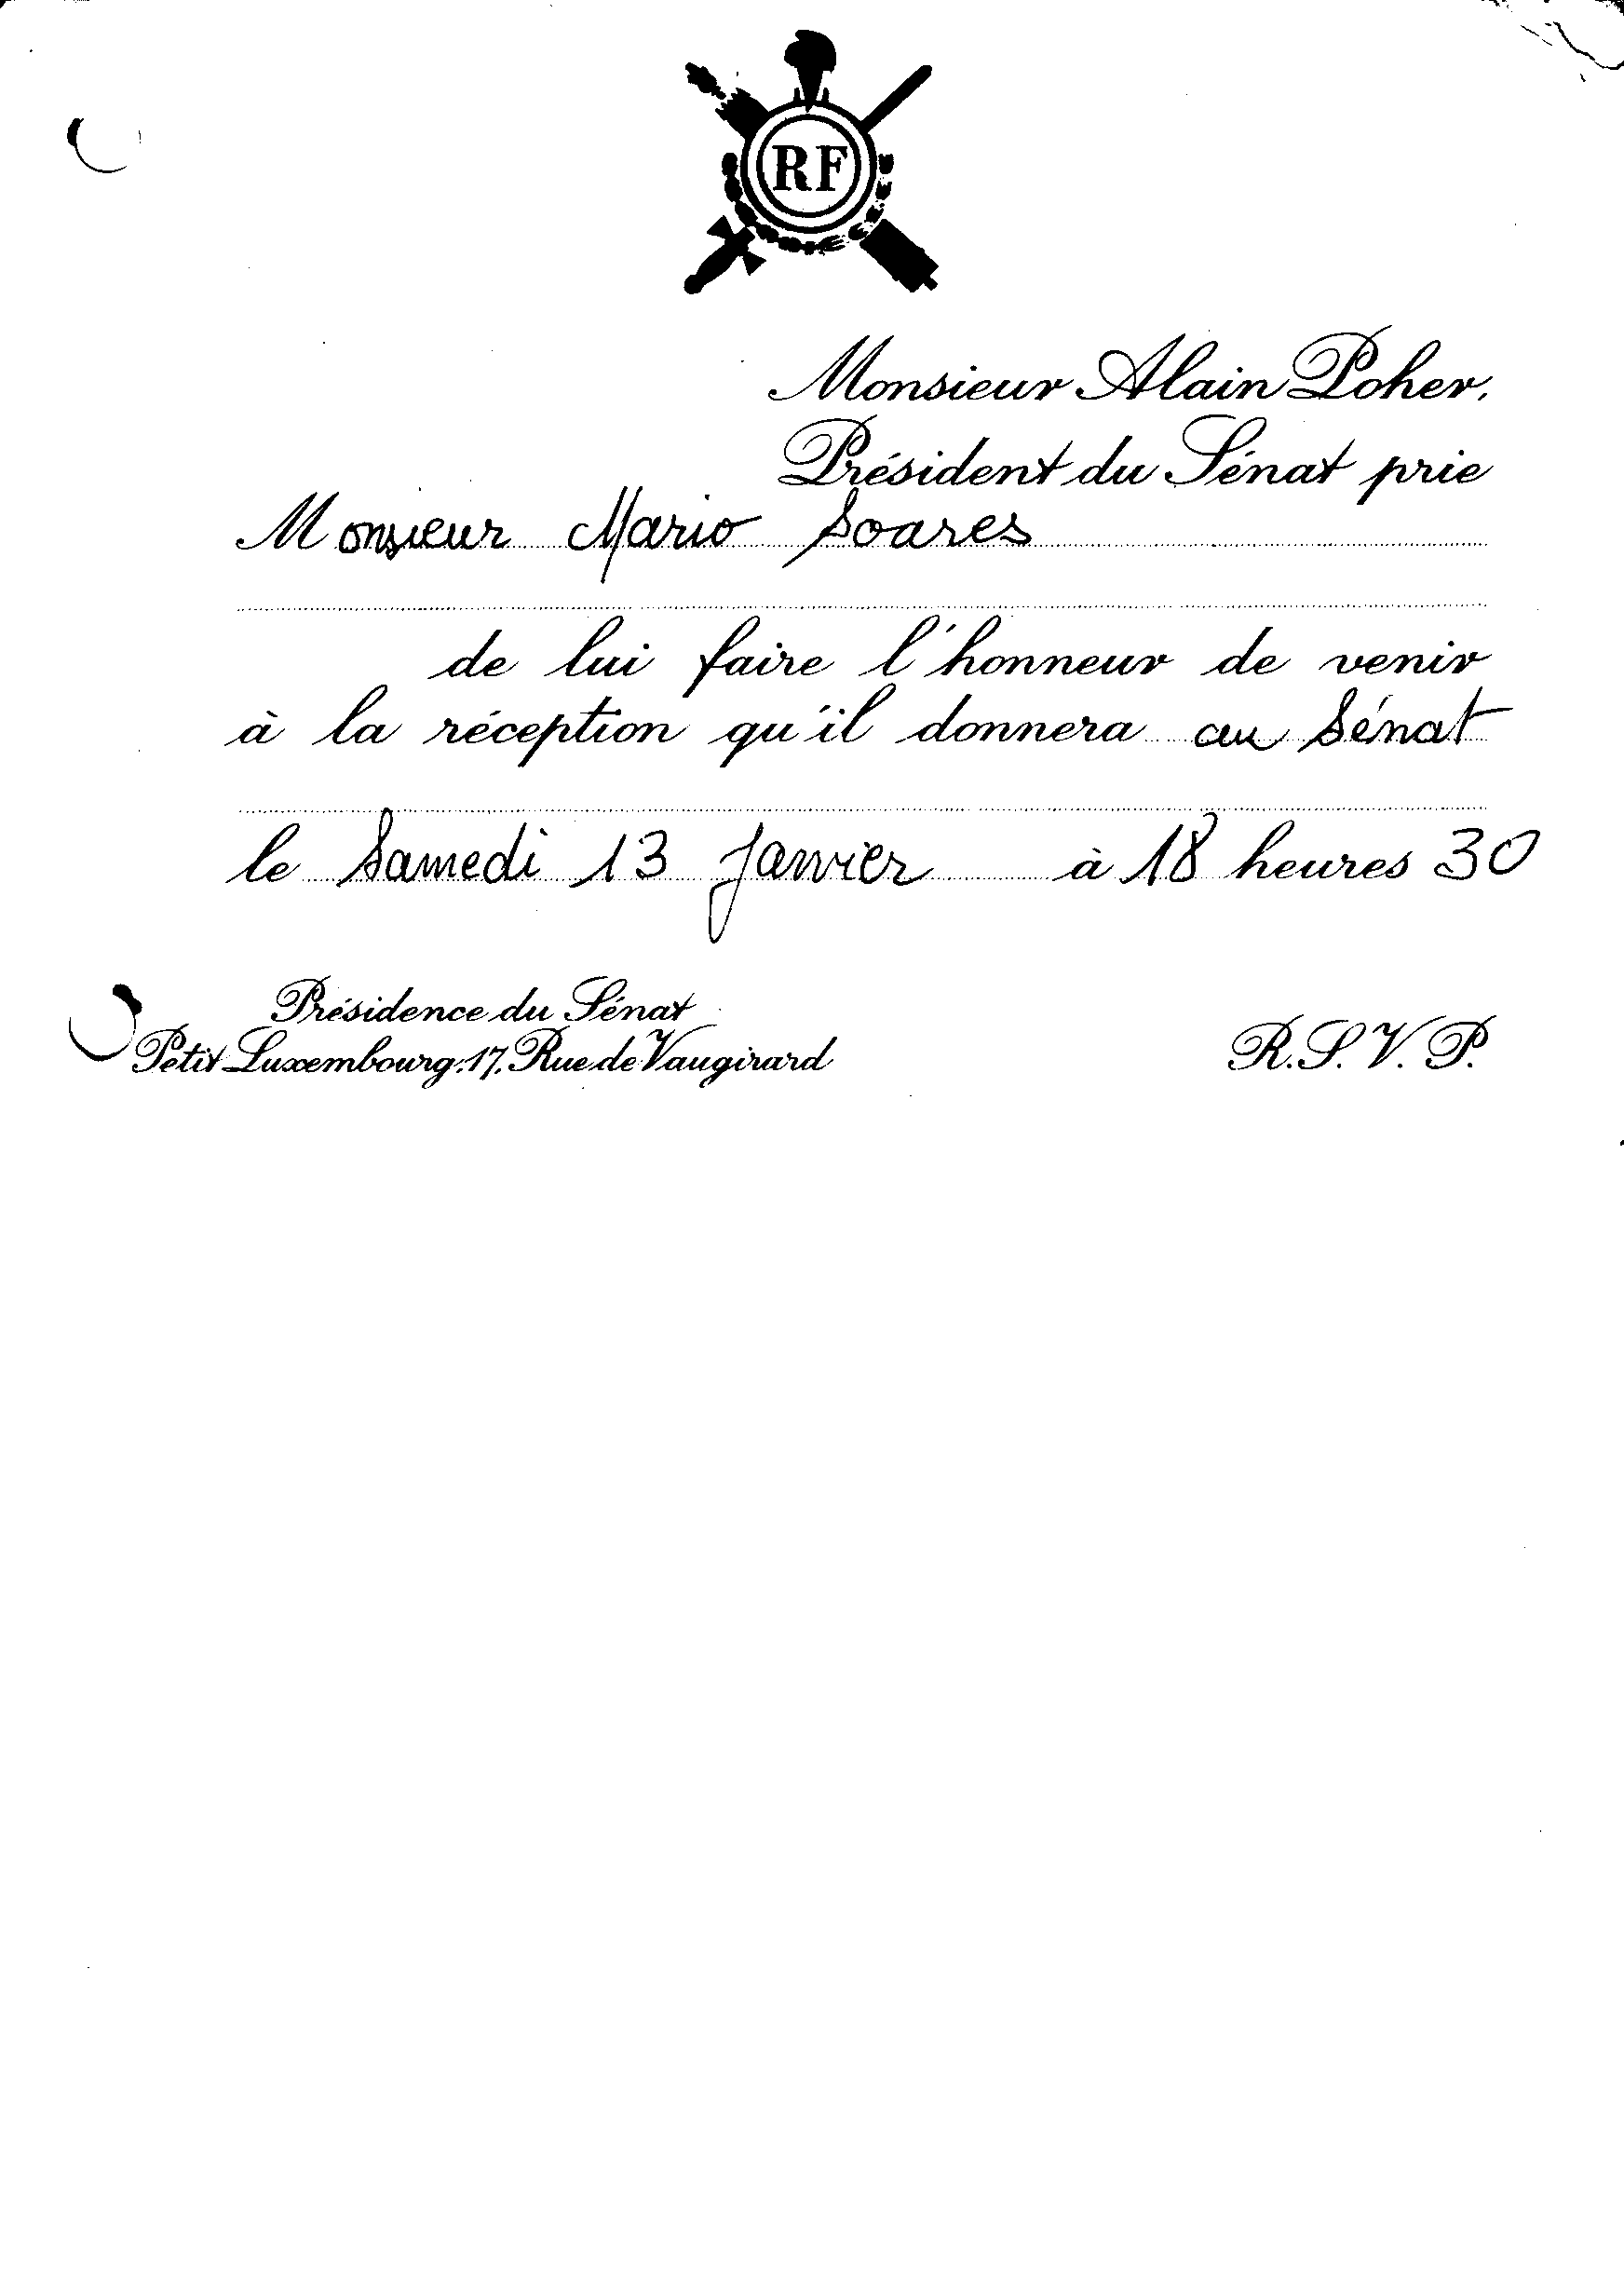 RF
Monsieur Alain Poher,
Président du Sénat prie
Monsieur Mario Soares
de lui faire l'honneur de venir
à la réception qu'il donnera au Sénat
le Samedi 13 Janvier à 18 heures 30
Présidence du Sénat
Petit Luxembourg, 17, Rue de Vaugirard
R.S.V.P.